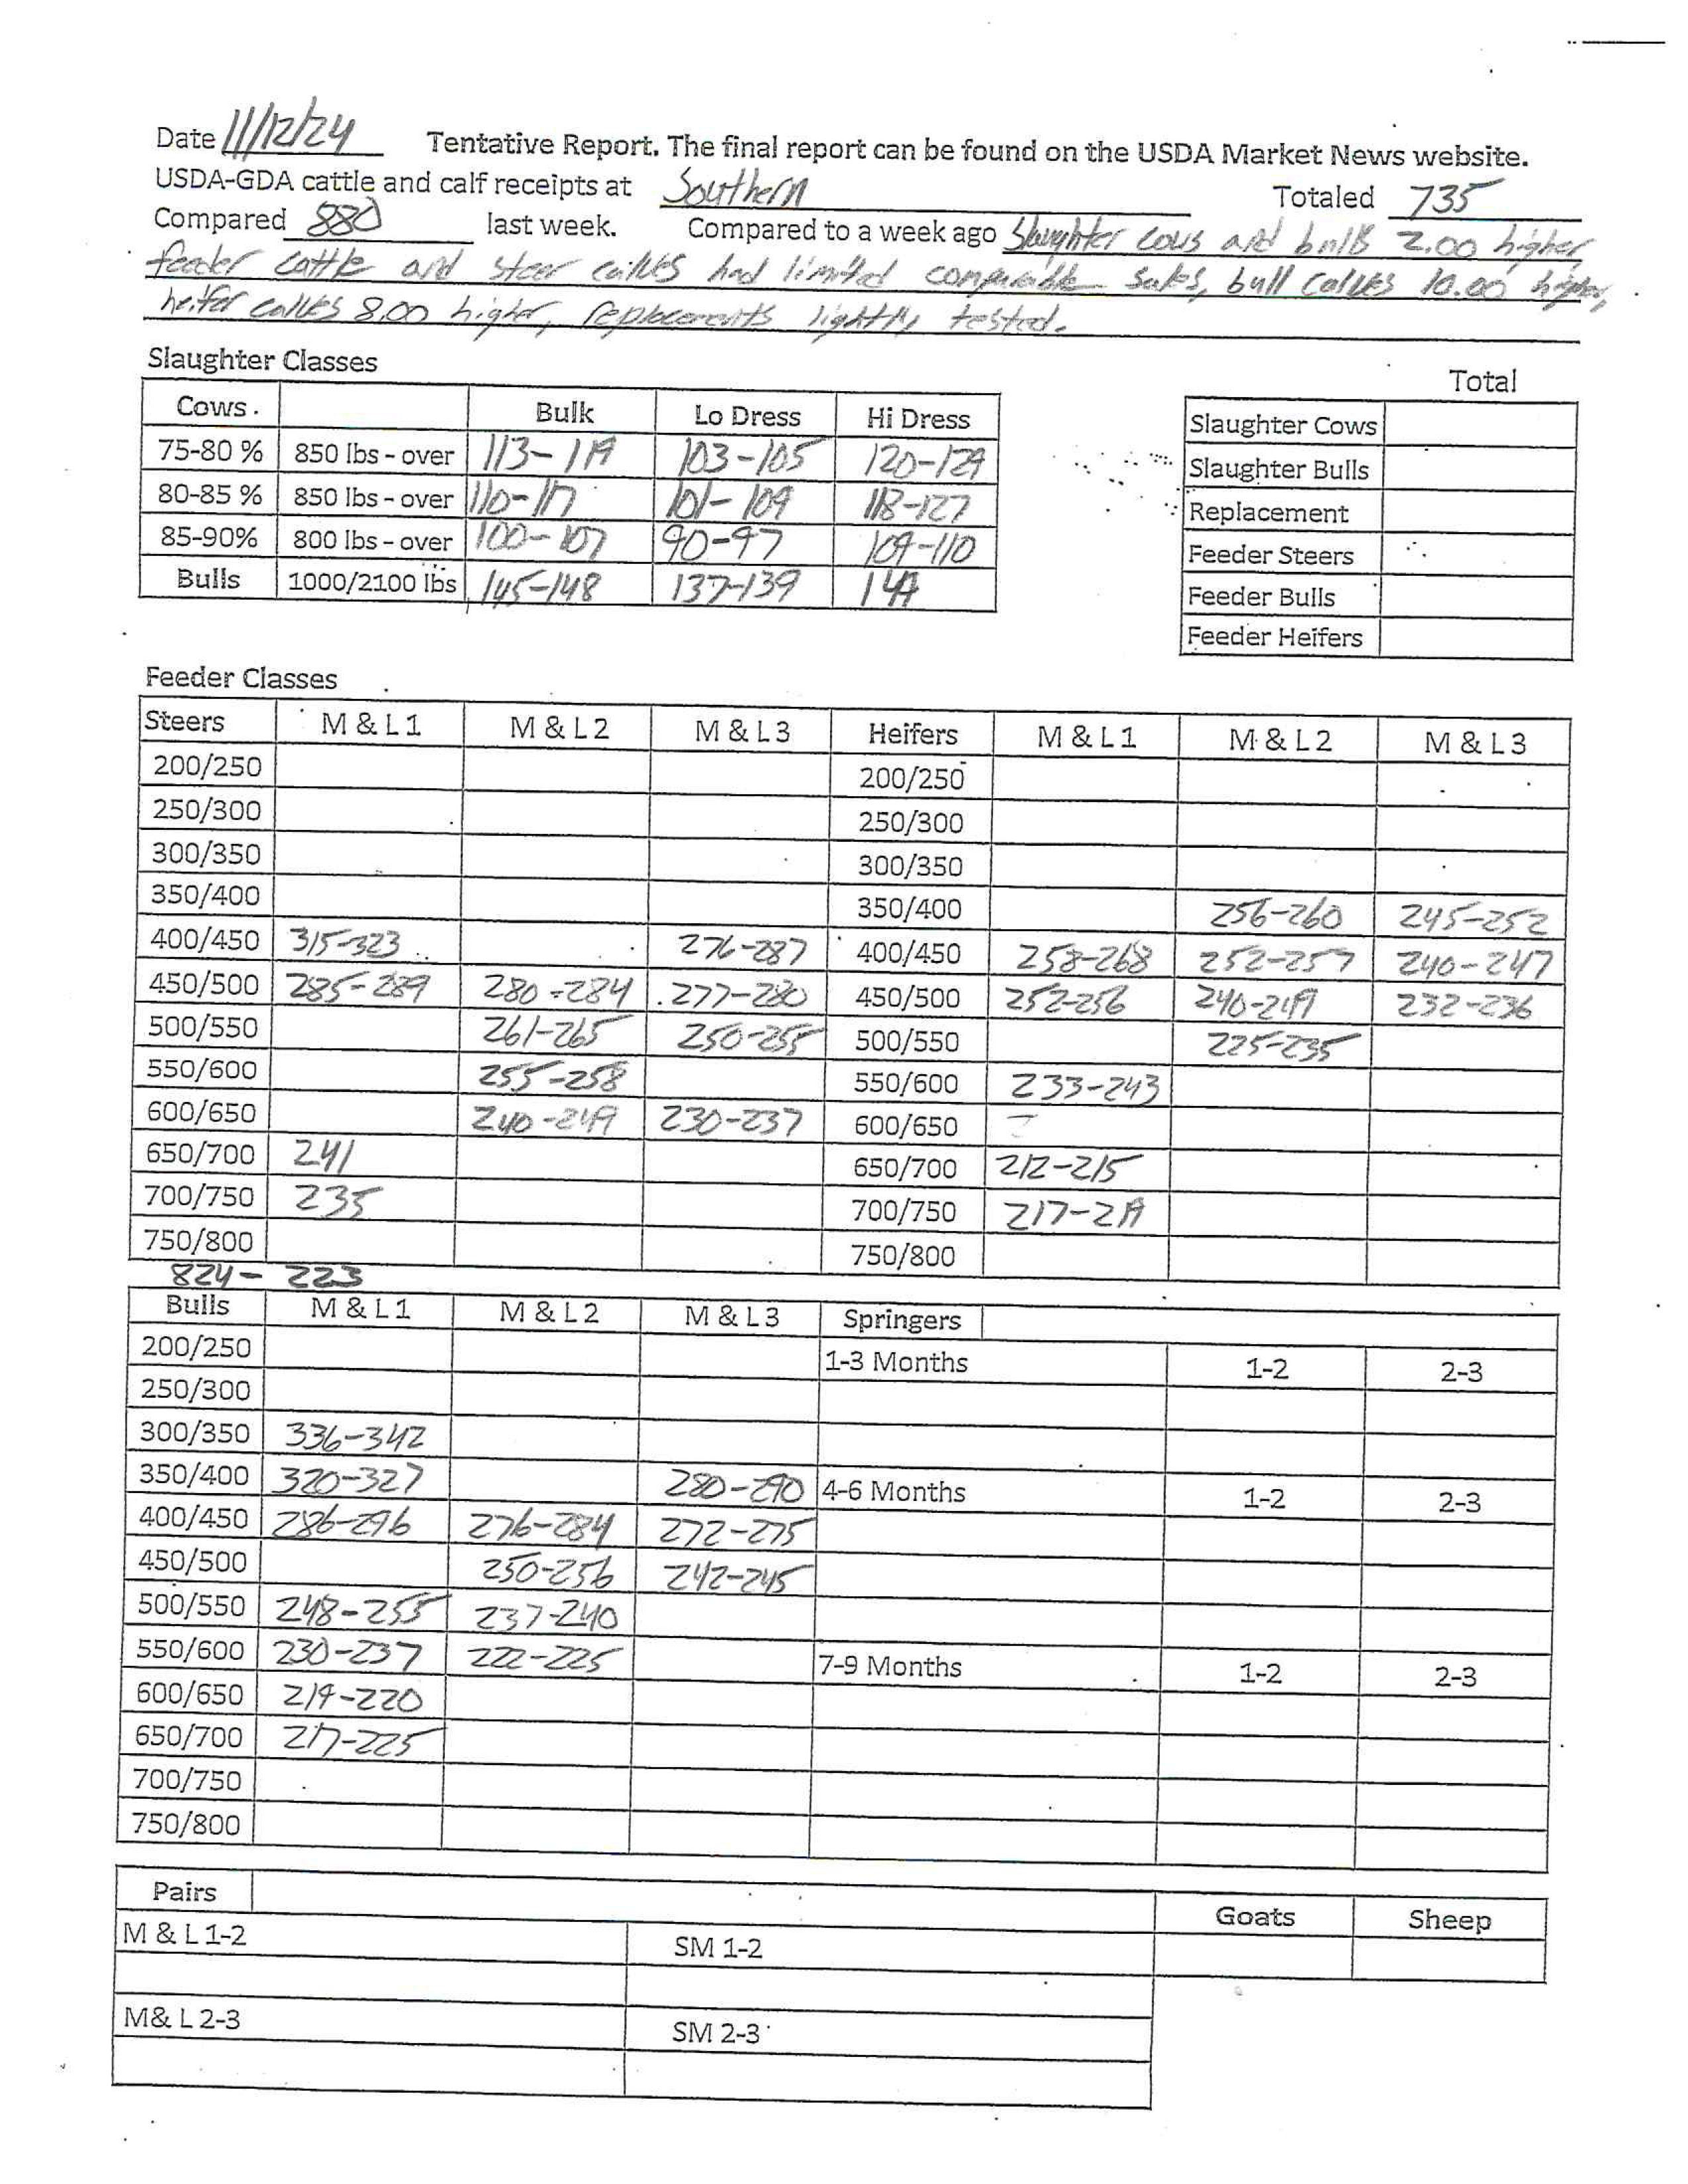 Date 11/12/24 Tentative Report. The final report can be found on the USDA Market News website.
USDA-GDA cattle and calf receipts at Southern Totaled 735
Compared 880 last week. Compared to a week ago Slaughter cows and bulls 2.00 higher,
feeder cattle and steer calves had limited comparable sales, bull calves 10.00 higher,
heifer calves 8.00 higher, replacements lightly tested.
Slaughter Classes
Total
Cows. Bulk Lo Dress Hi Dress
75-80 % 850 lbs - over 113-119 103-105 120-129
80-85 % 850 lbs - over 110-117 101-109 118-127
85-90% 800 lbs - over 100-107 90-97 109-110
Bulls 1000/2100 lbs 145-148 137-139 149
Slaughter Cows
Slaughter Bulls
Replacement
Feeder Steers
Feeder Bulls
Feeder Heifers
Feeder Classes
Steers M & L 1 M & L 2 M & L 3 Heifers M & L 1 M & L 2 M & L 3
200/250 200/250
250/300 250/300
300/350 300/350
350/400 350/400 256-260 245-252
400/450 315-323 276-287 400/450 258-268 252-257 240-247
450/500 285-289 280-284 277-280 450/500 252-256 240-249 232-236
500/550 261-265 250-255 500/550 225-235
550/600 255-258 550/600 233-243
600/650 240-249 230-237 600/650
650/700 241 650/700 212-215
700/750 235 700/750 217-219
750/800 750/800
824- 223
Bulls M & L 1 M & L 2 M & L 3 Springers
200/250 1-3 Months 1-2 2-3
250/300
300/350 336-342
350/400 320-327 280-290 4-6 Months 1-2 2-3
400/450 286-296 276-284 272-275
450/500 250-256 242-245
500/550 248-255 237-240
550/600 230-237 222-225 7-9 Months 1-2 2-3
600/650 219-220
650/700 217-225
700/750
750/800
Pairs Goats Sheep
M & L 1-2 SM 1-2
M& L 2-3 SM 2-3